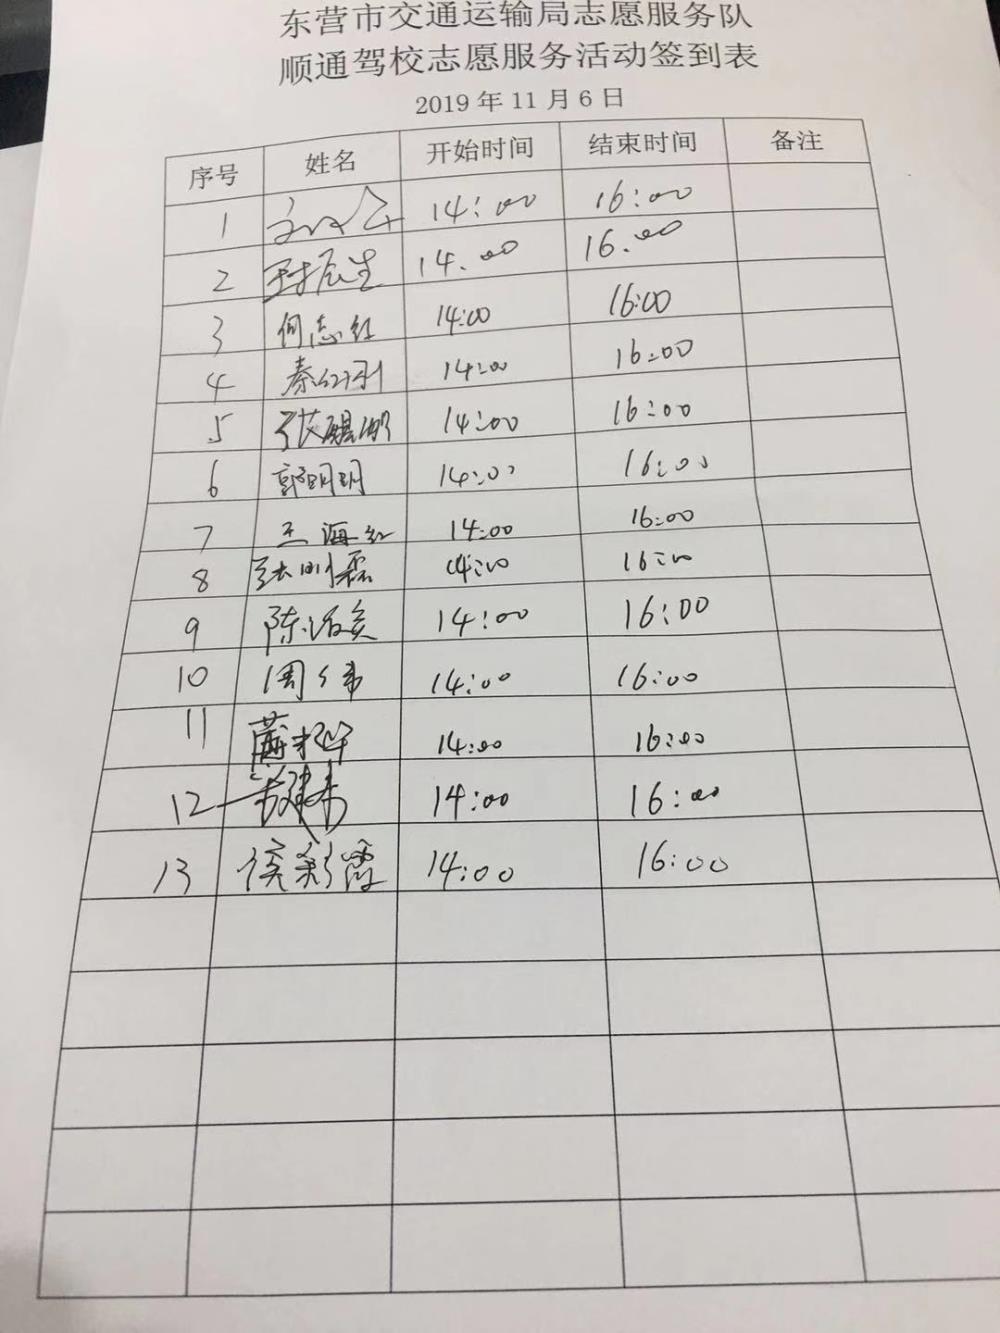 东营市交通运输局志愿服务队
顺通驾校志愿服务活动签到表
2019年11月6日
序号 姓名 开始时间 结束时间 备注
1 14:00 16:00
2 14.00 16.00
3 何志红 14:00 16:00
4 14:00 16:00
5 14:00 16:00
6 郭明明 14:00 16:00
7 王海红 14:00 16:00
8 14:00 16:00
9 14:00 16:00
10 周伟 14:00 16:00
11 14:00 16:00
12 14:00 16:00
13 侯彩霞 14:00 16:00